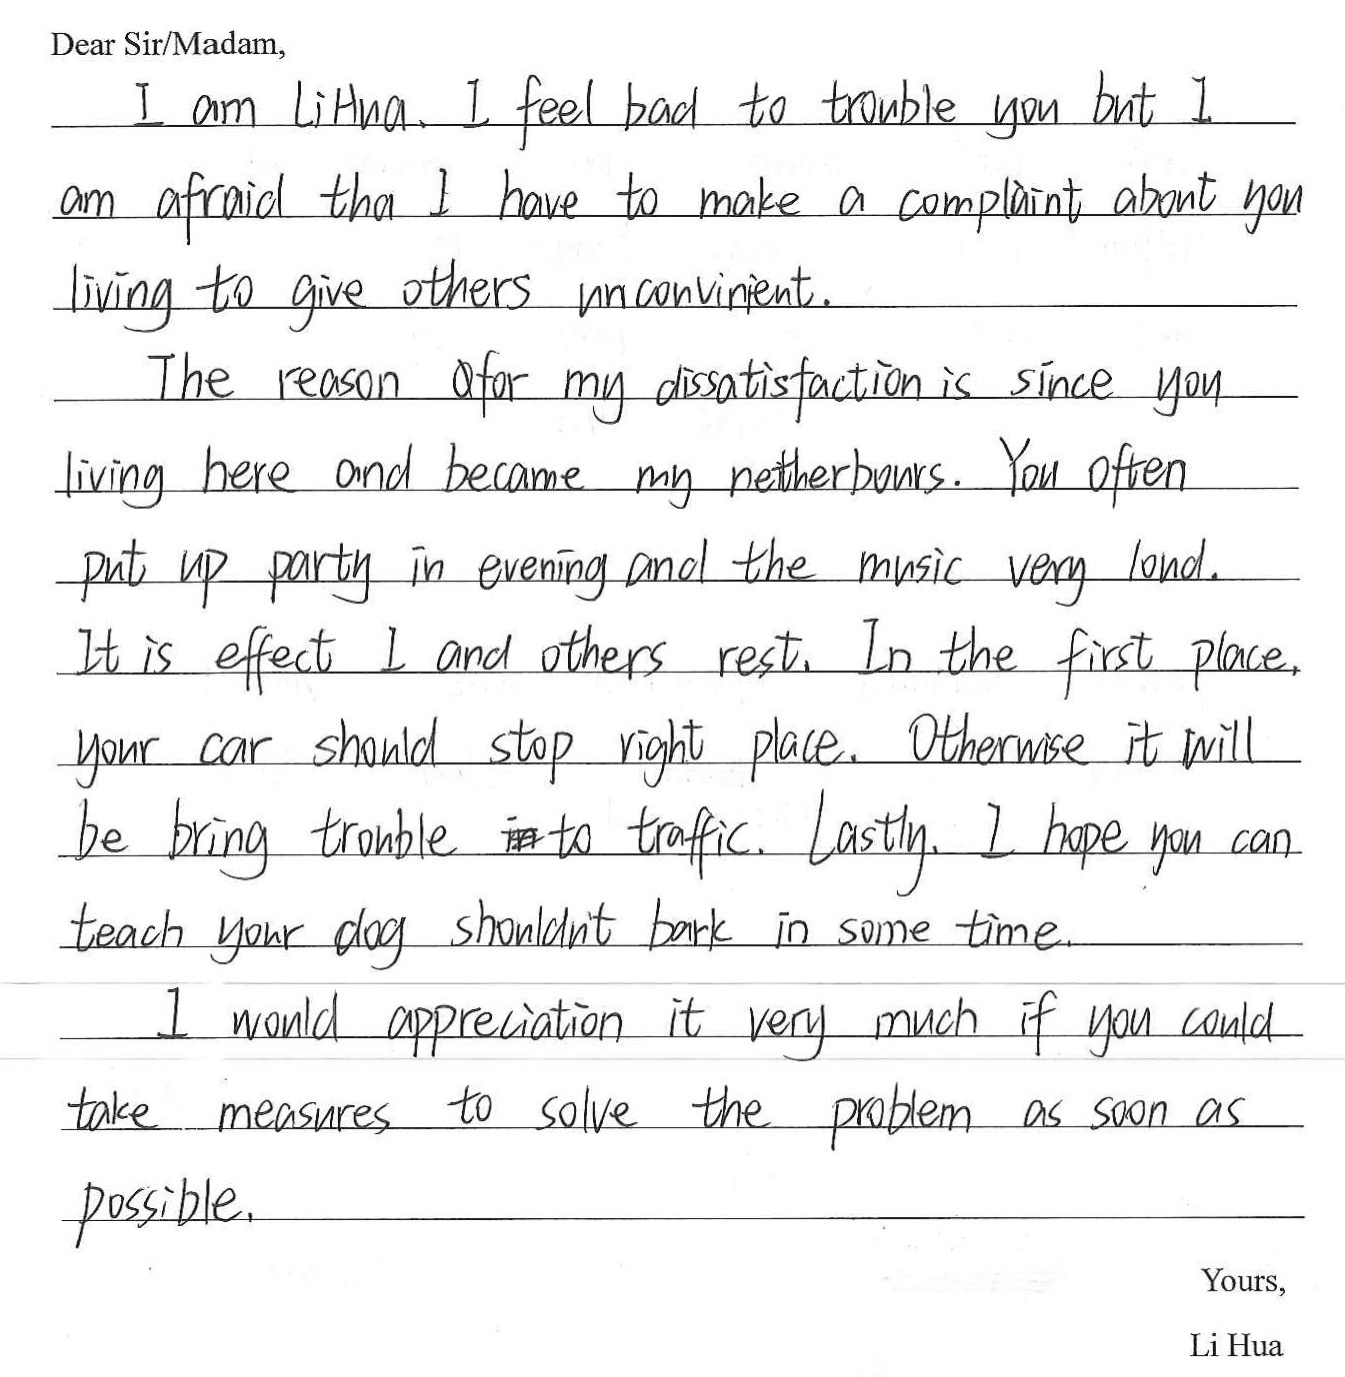 Dear Sir/Madam,
I am LiHua. I feel bad to trouble you but I
am afraid tha I have to make a complaint about you
living to give others unconvinient.
The reason for my dissatisfaction is since you
living here and became my netherbours. You often
put up party in evening and the music very loud.
It is effect I and others rest. In the first place,
your car should stop right place. Otherwise it will
be bring trouble to traffic. Lastly, I hope you can
teach your dog shouldn't bark in some time.
I would appreciation it very much if you could
take measures to solve the problem as soon as
possible.
Yours,
Li Hua